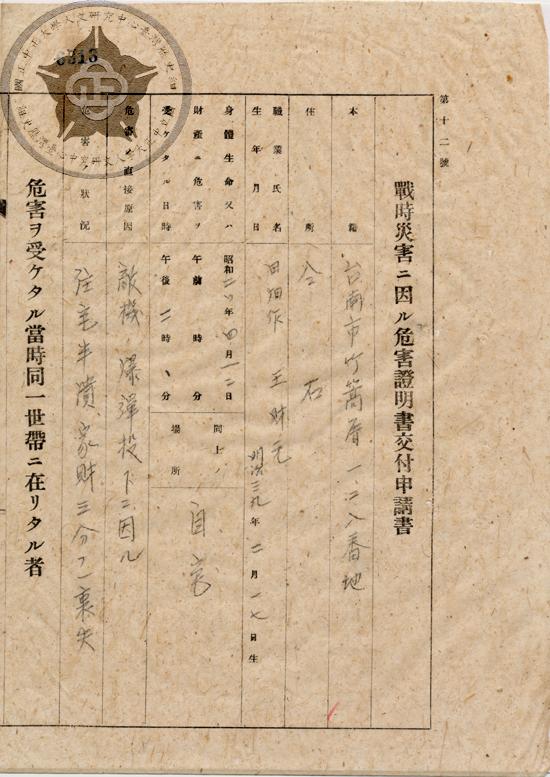 第十二號
戰時災害ニ因ル危害證明書交付申請書
本籍 台南市竹篙厝一二八番地
住所 仝右
職業氏名 田畑作 王財元
生年月日 明治三九年二月一七日生
身體生命又ハ財產ニ危害ヲ受ケタル日時 昭和二〇年四月一二日 午前 時 分 午後 二時 、分
同上ノ場所 自宅
危害ノ直接原因 敵機ノ爆彈投下ニ因ル
危害ノ狀況 住宅半潰、家財三分ノ一喪失
危害ヲ受ケタル當時同一世帶ニ在リタル者
6313